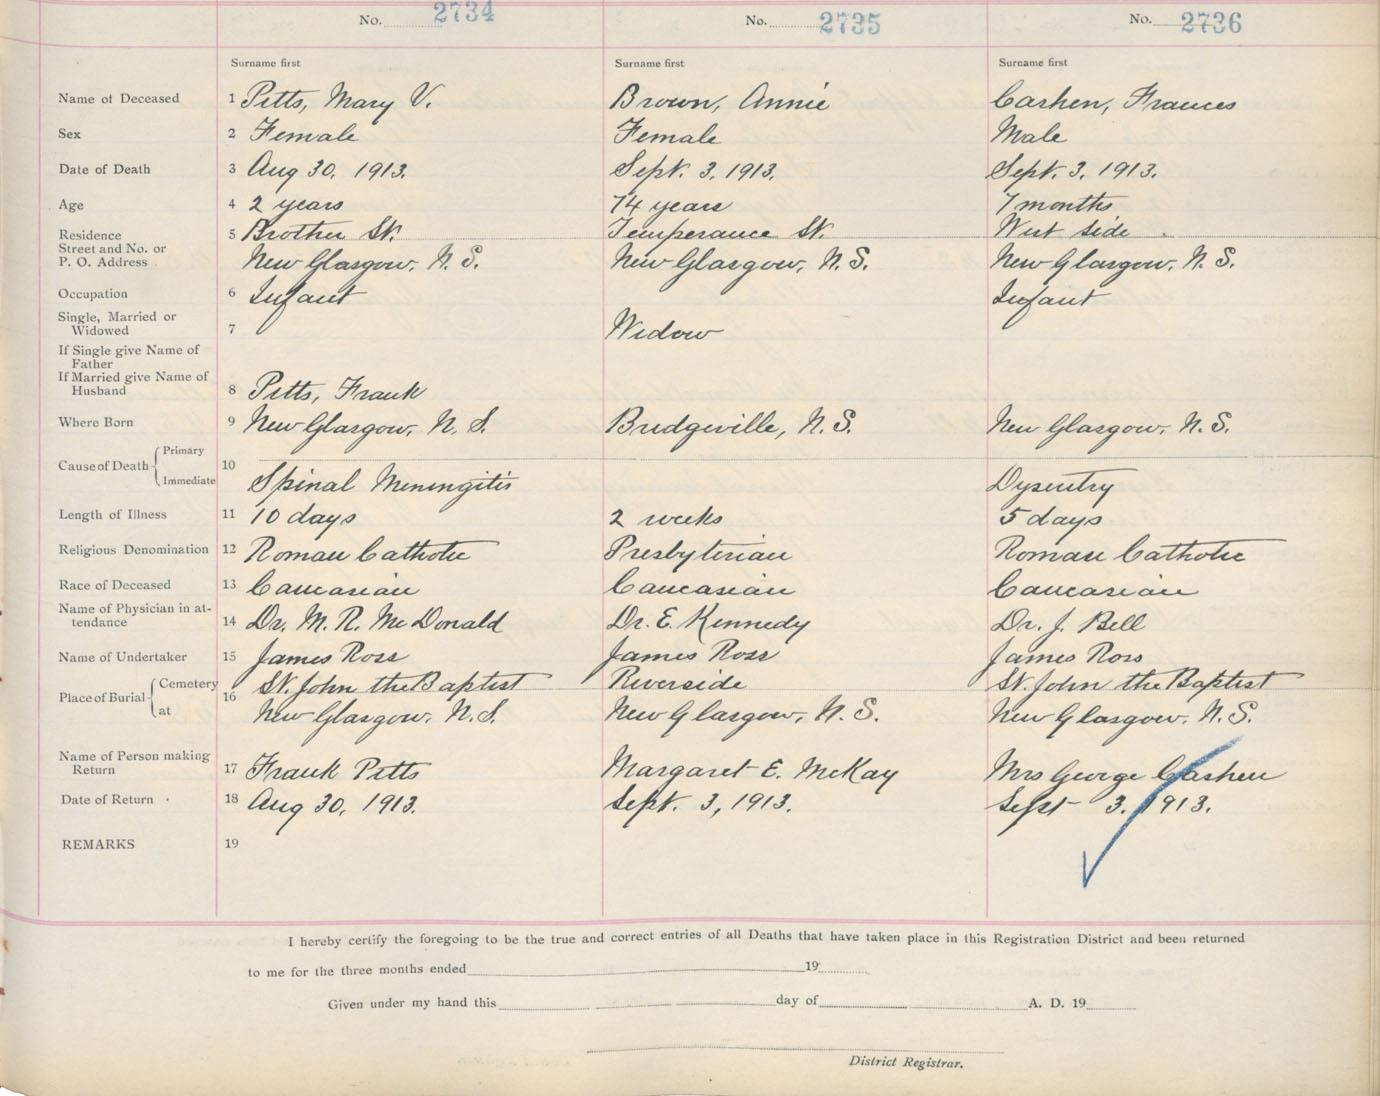 No. 2734 No. 2735 No. 2736
Surname first Surname first Surname first
Name of Deceased 1 Pitts, Mary V. Brown, Annie Cashen, Frances
Sex 2 Female Female Male
Date of Death 3 Aug 30, 1913. Sept. 3, 1913. Sept. 3, 1913.
Age 4 2 years 74 years 7 months
Residence 5 Brother St. Temperance St. West Side
Street and No. or
P. O. Address New Glasgow, N. S. New Glasgow, N. S. New Glasgow, N. S.
Occupation 6 Infant Infant
Single, Married or
Widowed 7 Widow
If Single give Name of
Father
If Married give Name of
Husband 8 Pitts, Frank
Where Born 9 New Glasgow, N. S. Bridgeville, N. S. New Glasgow, N. S.
Cause of Death Primary 10
Immediate Spinal Meningitis Dysentry
Length of Illness 11 10 days 2 weeks 5 days
Religious Denomination 12 Roman Catholic Presbyterian Roman Catholic
Race of Deceased 13 Caucasian Caucasian Caucasian
Name of Physician in at-
tendance 14 Dr. M. R. McDonald Dr. E. Kennedy Dr. J. Bell
Name of Undertaker 15 James Ross James Ross James Ross
Place of Burial Cemetery 16 St. John the Baptist Riverside St. John the Baptist
at New Glasgow, N. S. New Glasgow, N. S. New Glasgow, N. S.
Name of Person making
Return 17 Frank Pitts Margaret E. McKay Mrs George Cashen
Date of Return 18 Aug 30, 1913. Sept. 3, 1913. Sept 3, 1913.
REMARKS 19
I hereby certify the foregoing to be the true and correct entries of all Deaths that have taken place in this Registration District and been returned
to me for the three months ended 19
Given under my hand this day of A. D. 19
District Registrar.